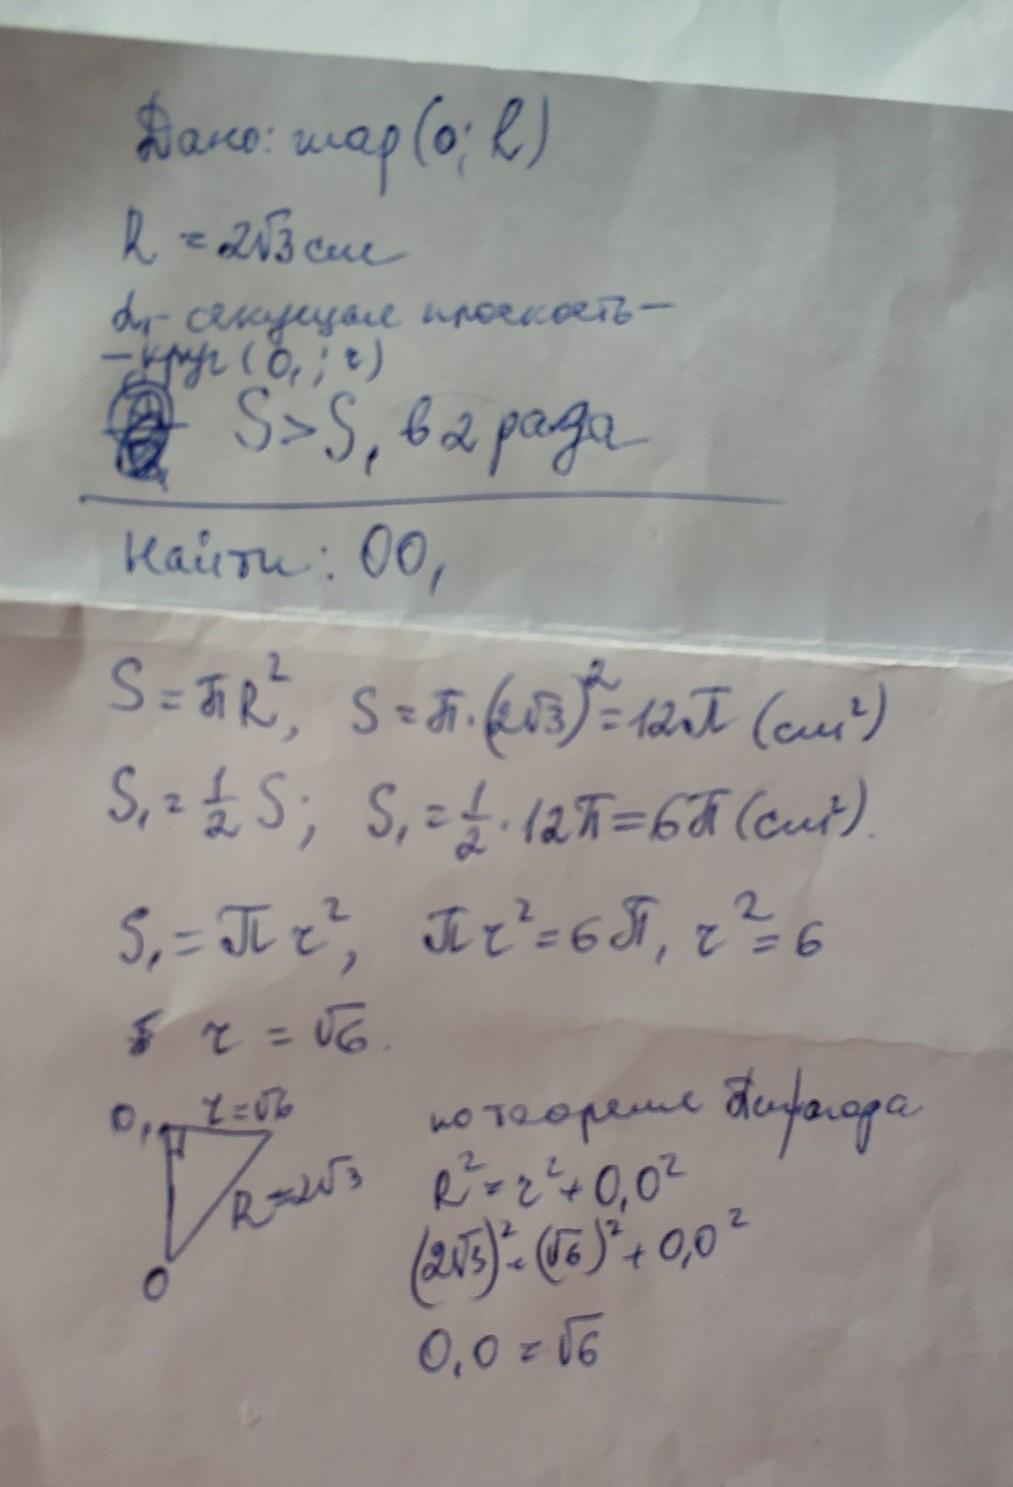 Дано: шар (O; R)
R = 2√3 см
α₁ - секущая плоскость -
- круг (O₁; r)
S > S₁ в 2 раза
Найти: OO₁
S = πR², S = π·(2√3)² = 12π (см²)
S₁ = 1/2 S; S₁ = 1/2 · 12π = 6π (см²).
S₁ = πr², πr² = 6π, r² = 6
r = √6.
O₁ r = √6
R = 2√3
O
по теореме Пифагора
R² = r² + O₁O²
(2√3)² = (√6)² + O₁O²
O₁O = √6